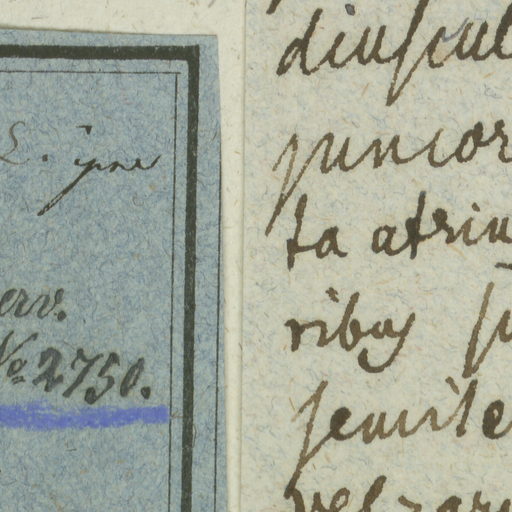 L. ipse
erv.
№ 2750.
diuscul
junior
ta atriu
ribus
semile